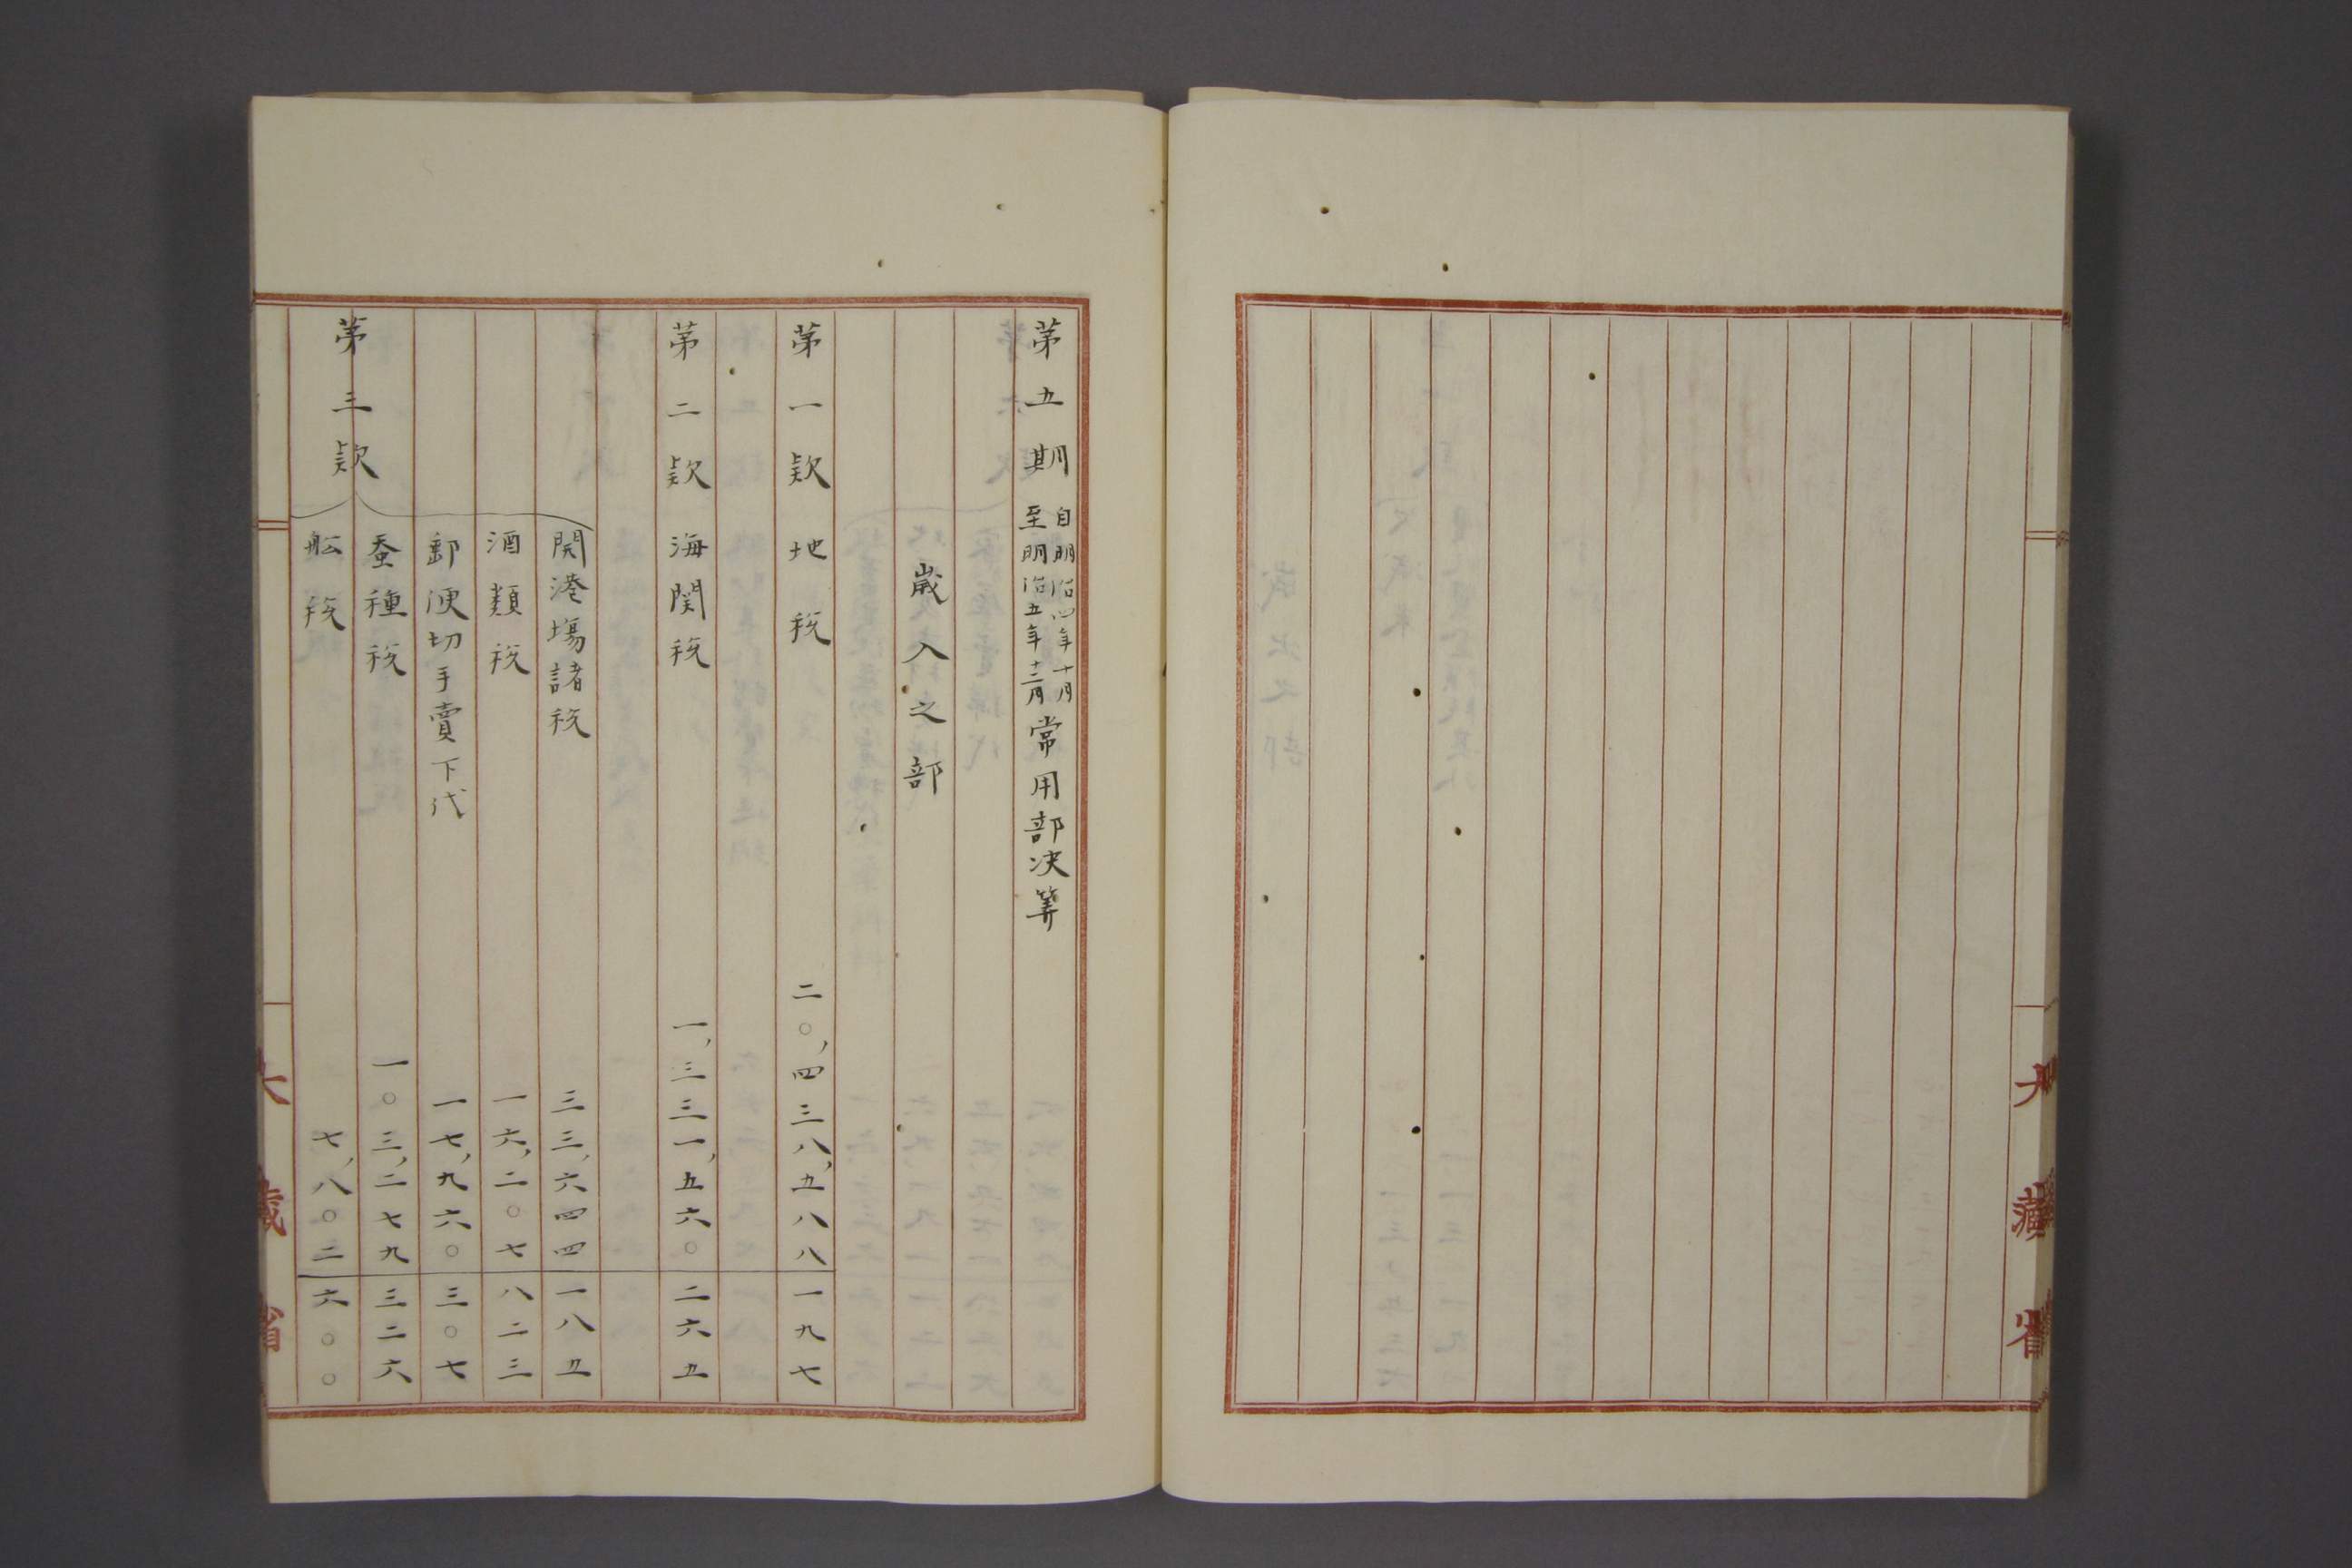 大藏省
第五期 自明治四年十月 至明治五年十二月 常用部決算
歳入之部
第一款 地税 二〇,四三八,五八八 一九七
第二款 海関税 一,三三一,五六〇 二六五
第三款
開港場諸税 三三,六四四 一八五
酒類税 一六,二〇七 八二三
郵便切手賣下代 一七,九六〇 三〇七
蚕種税 一〇三,二七九 三二六
舩税 七,八〇二 六〇〇
大藏省